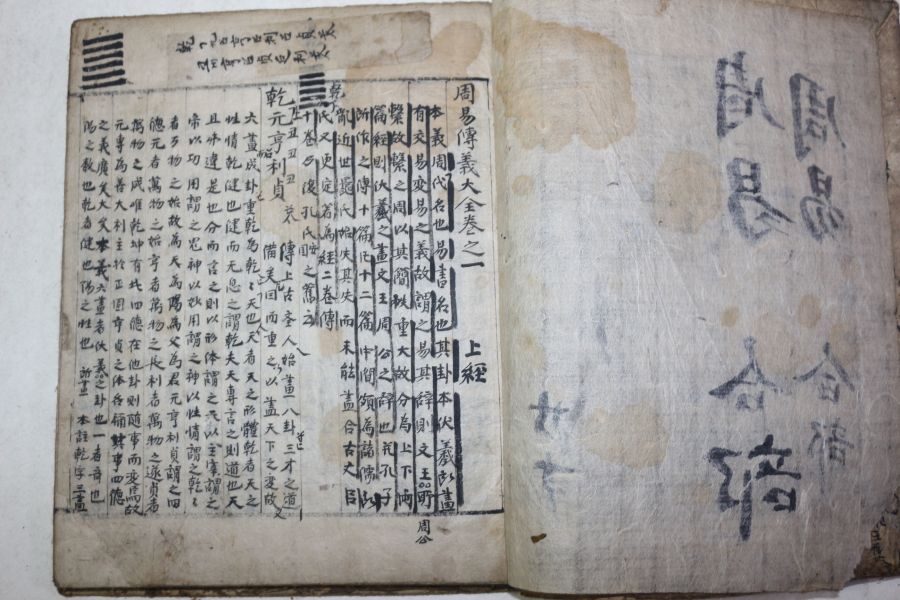 周易
周易
合部
合部
周易傳義大全卷之一
上經
本義周代名也易書名也其卦本伏羲所畫
有交易變易之義故謂之易其辭則文王
周公
所
繫故繫之周以其簡秩重大故分為上下兩
篇經則伏羲之畫文王周公之辭也并孔子
所作之傳十篇凡十二篇中間頗為諸儒所
亂近世晁氏始失其失而未能盡合古文呂
氏又更定著為經二卷傳
十卷乃復孔氏之舊云
乾
乾元亨利貞
傳上古聖人始畫八卦三才之道
備矣因而重之以盡天下之變故
六畫成卦重乾為乾乾天也天者天之形體乾者天之
性情乾健也健而无息之謂乾夫天專言之則道也天
且不違是也分而言之則以形体謂之天以主宰謂之
帝以功用謂之鬼神以妙用謂之神以性情謂之乾乾
者万物之始故為天為陽為父為君元亨利貞謂之四
德元者萬物之始亨者萬物之長利者萬物之遂貞者
萬物之成唯乾坤有此四德在他卦則隨事而变焉故
元專為善大利主於正固亨貞之体各稱其事四德
之義廣矣大矣本義六畫者伏羲之卦也一者奇也
陽之数也乾者健也陽之性也
本註乾字三畫